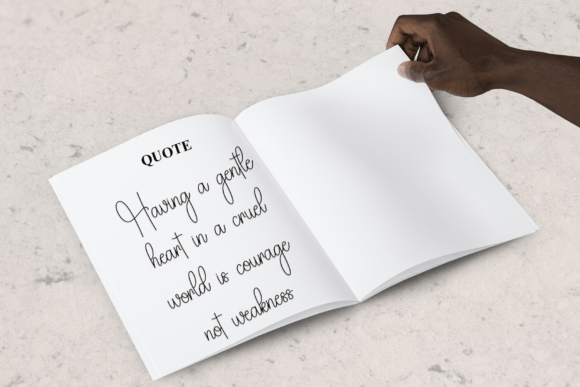 QUOTE
Having a gentle
heart in a cruel
world is courage
not weakness